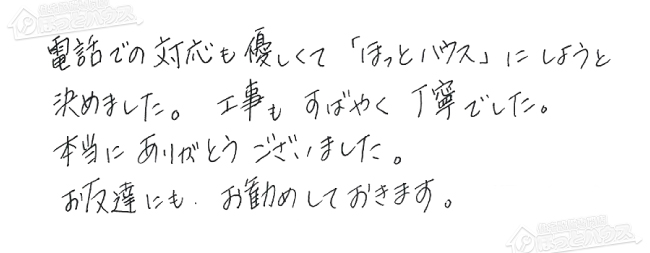 電話での対応も優しくて「ほっとハウス」にしようと
決めました。 工事も すばやく 丁寧でした。
本当に ありがとう ございました。
お友達にも、お勧めしておきます。
ほっとハウス
ほっとハウス